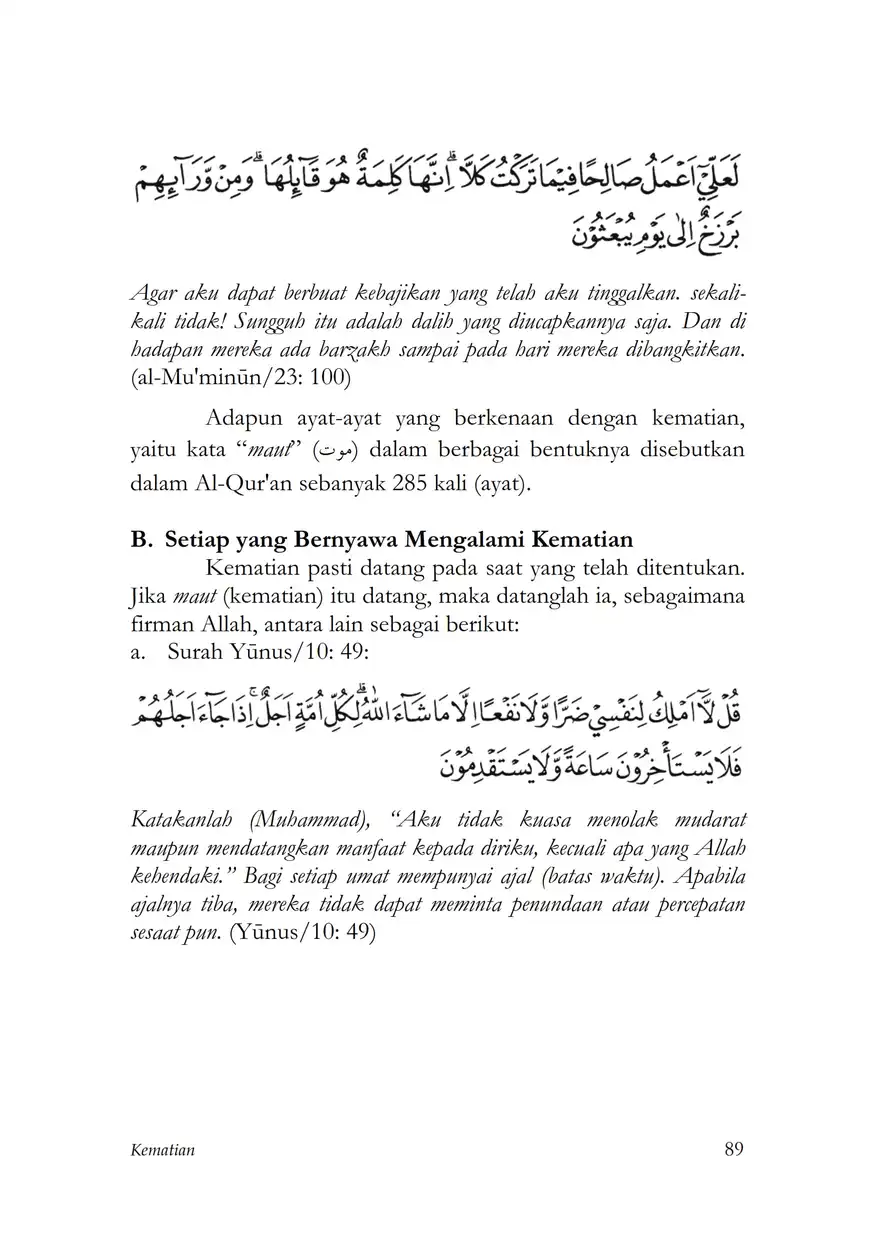 لَعَلِّيْٓ اَعْمَلُ صَالِحًا فِيْمَا تَرَكْتُ كَلَّاۗ اِنَّهَا كَلِمَةٌ هُوَ قَاۤىِٕلُهَاۗ وَمِنْ وَّرَاۤىِٕهِمْ
بَرْزَخٌ اِلٰى يَوْمِ يُبْعَثُوْنَ
Agar aku dapat berbuat kebajikan yang telah aku tinggalkan. sekali-
kali tidak! Sungguh itu adalah dalih yang diucapkannya saja. Dan di
hadapan mereka ada barzakh sampai pada hari mereka dibangkitkan.
(al-Mu'minūn/23: 100)
Adapun ayat-ayat yang berkenaan dengan kematian,
yaitu kata “maut” (موت) dalam berbagai bentuknya disebutkan
dalam Al-Qur'an sebanyak 285 kali (ayat).
B. Setiap yang Bernyawa Mengalami Kematian
Kematian pasti datang pada saat yang telah ditentukan.
Jika maut (kematian) itu datang, maka datanglah ia, sebagaimana
firman Allah, antara lain sebagai berikut:
a. Surah Yūnus/10: 49:
قُلْ لَّآ اَمْلِكُ لِنَفْسِيْ ضَرًّا وَّلَا نَفْعًا اِلَّا مَا شَاۤءَ اللّٰهُ ۗ لِكُلِّ اُمَّةٍ اَجَلٌ ۚ اِذَا جَاۤءَ اَجَلُهُمْ
فَلَا يَسْتَأْخِرُوْنَ سَاعَةً وَّلَا يَسْتَقْدِمُوْنَ
Katakanlah (Muhammad), “Aku tidak kuasa menolak mudarat
maupun mendatangkan manfaat kepada diriku, kecuali apa yang Allah
kehendaki.” Bagi setiap umat mempunyai ajal (batas waktu). Apabila
ajalnya tiba, mereka tidak dapat meminta penundaan atau percepatan
sesaat pun. (Yūnus/10: 49)
Kematian 89